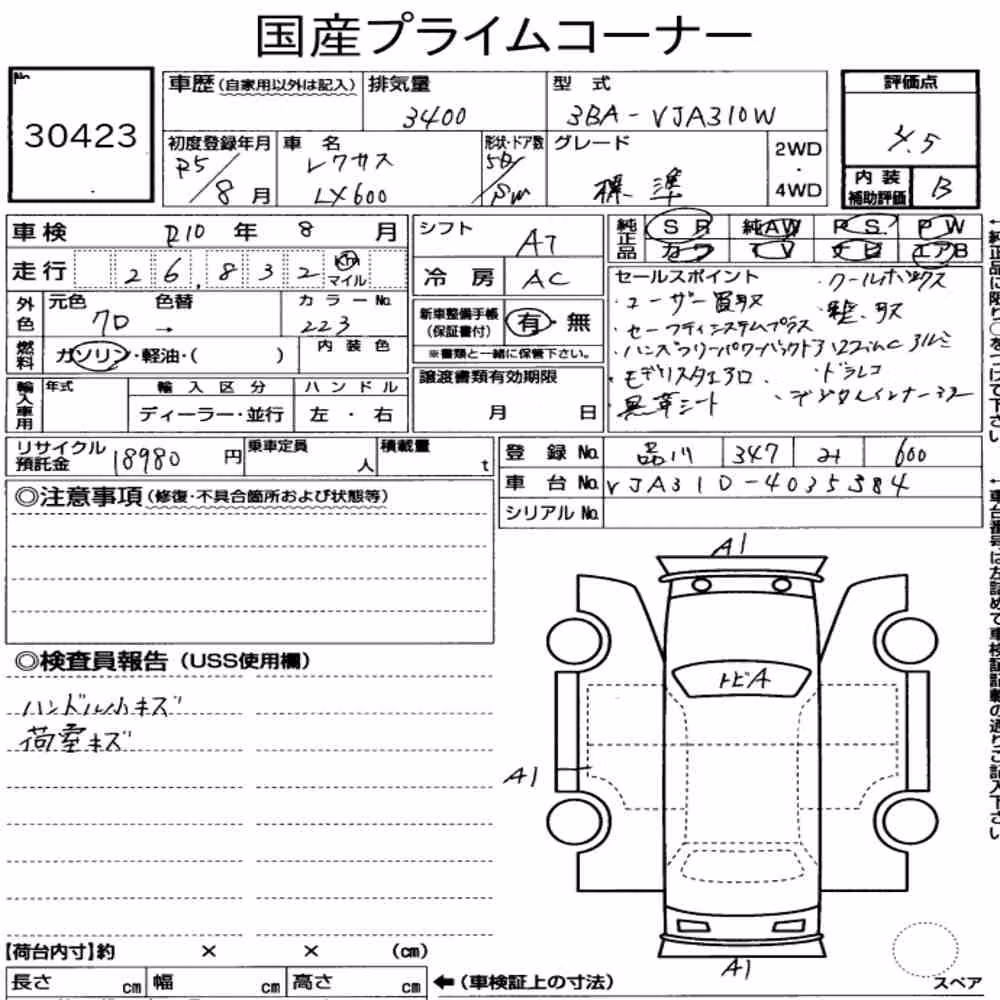 国産プライムコーナー
No.
30423
車歴(自家用以外は記入)
排気量
3400
型式
3BA-VJA310W
評価点
4.5
内装補助評価
B
初度登録年月
R5/8月
車名
レクサス
LX600
形状・ドア数
5D/SW
グレード
標準
2WD
・
4WD
車検 R10年 8月
走行 26,832 km マイル
シフト
AT
冷房 AC
純正品
SR 純AW P.S. PW
カワ TV ナビ エアB
外色
元色 色替 カラーNo.
7D → 223
燃料
ガソリン・軽油・( )
内装色
新車整備手帳(保証書付) 有・無
※書類と一緒に保管下さい。
セールスポイント
・クールボックス
・ユーザー買取
・セーフティシステムプラス
・ハンズフリーパワーバックドア 22inc アルミ
・モデリスタエアロ
・ドラレコ
・黒革シート
・デジタルインナーミラー
輸入車用
年式
輸入区分
ハンドル
ディーラー・並行
左・右
譲渡書類有効期限
月 日
リサイクル預託金 18980円
乗車定員 人
積載量 t
登録No. 品川 347 み 600
車台No. VJA310-4035584
シリアルNo.
◎注意事項(修復・不具合箇所および状態等)
◎検査員報告(USS使用欄)
ハンドル小キズ
荷室キズ
A1
トビA
A1
A1
【荷台内寸】約 × × (cm)
長さ cm 幅 cm 高さ cm
←(車検証上の寸法)
スペア
←純正品に限り○をつけて下さい
←車台番号は左詰めで車検証記載の通りご記入下さい